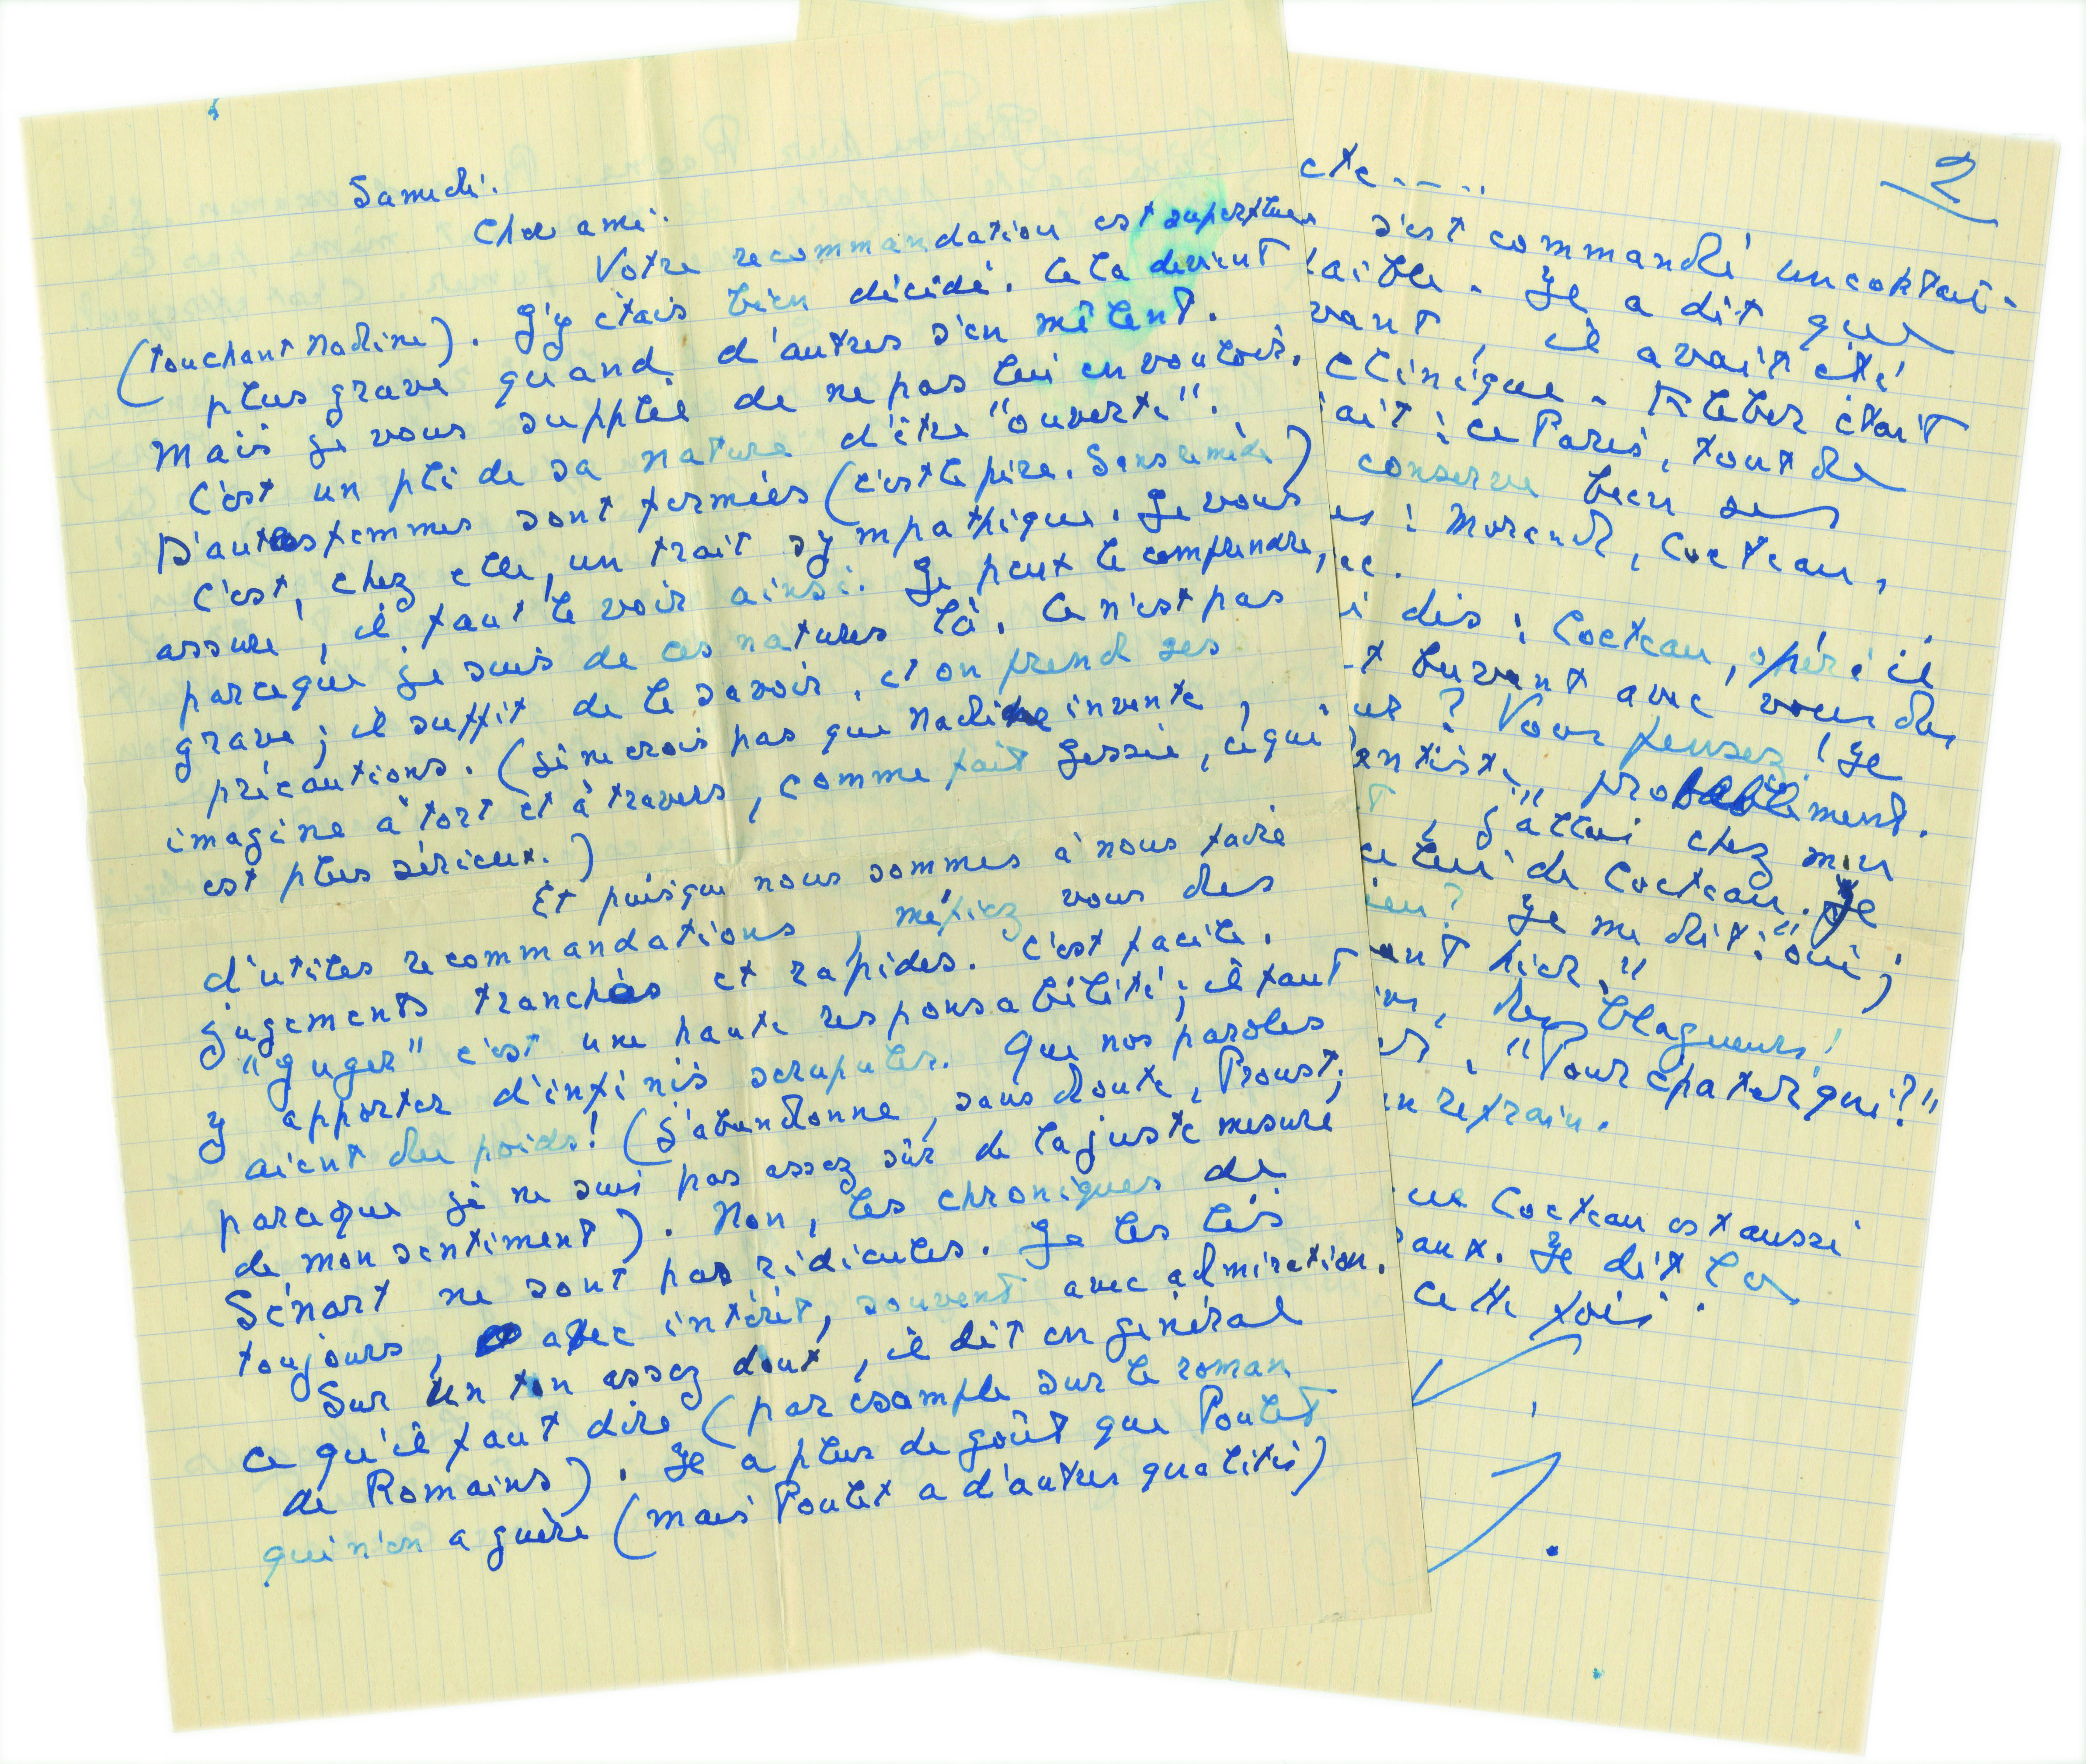 Samedi.
Cher ami.
Votre recommandation est superflue
(touchant Nadine). J'y étais bien décidé. Cela devient
plus grave quand d'autres s'en mêlent.
Mais je vous supplie de ne pas lui en vouloir.
C'est un pli de sa nature d'être "ouverte".
D'autres femmes sont fermées (c'est le pire. Sans remède)
C'est, chez elle, un trait sympathique. Je vous
assure, il faut le voir ainsi. Je peux le comprendre,
parceque je suis de ces natures là. Ce n'est pas
grave ; il suffit de le savoir, et on prend ses
précautions. (Je ne crois pas que Nadine invente,
imagine à tort et à travers, comme fait Jessie, ce qui
est plus sérieux.)
Et puisque nous sommes à nous faire
d'utiles recommandations, méfiez vous des
jugements tranchés et rapides. C'est facile.
"Juger" c'est une haute responsabilité ; il faut
y apporter d'infinis scrupules. Que nos paroles
aient du poids! (J'abandonne, sans doute, Proust,
parceque je ne suis pas assez sûr de la juste mesure
de mon sentiment). Non, les chroniques de
Sénart ne sont pas ridicules. Je les lis
toujours, avec intérêt, souvent avec admiration.
Sur un ton assez doux, il dit en général
ce qu'il faut dire (par example sur le roman
de Romains). Il a plus de goût que Poulet
qui n'en a guère (mais Poulet a d'autres qualités)
2
etc.....
s'est commandé un cocktail.
. Il a dit que
vant, il avait été
clinique. Kleber était
ait : ce Paris, tout de
conserve bien ses
es : Morand, Cocteau,
ec.
i dis : Cocteau, opéré il
t buvant avec vous des
? Vous pensez ! Je
entiste, probablement.
, j'allai chez mon
celui de Cocteau. Je
ien? Il me dit : "oui ;
ant hier."
, des blagueurs !
. "Pour épater qui?"
un refrain.
ue Cocteau est aussi
aux. Il dit la
cette fois.